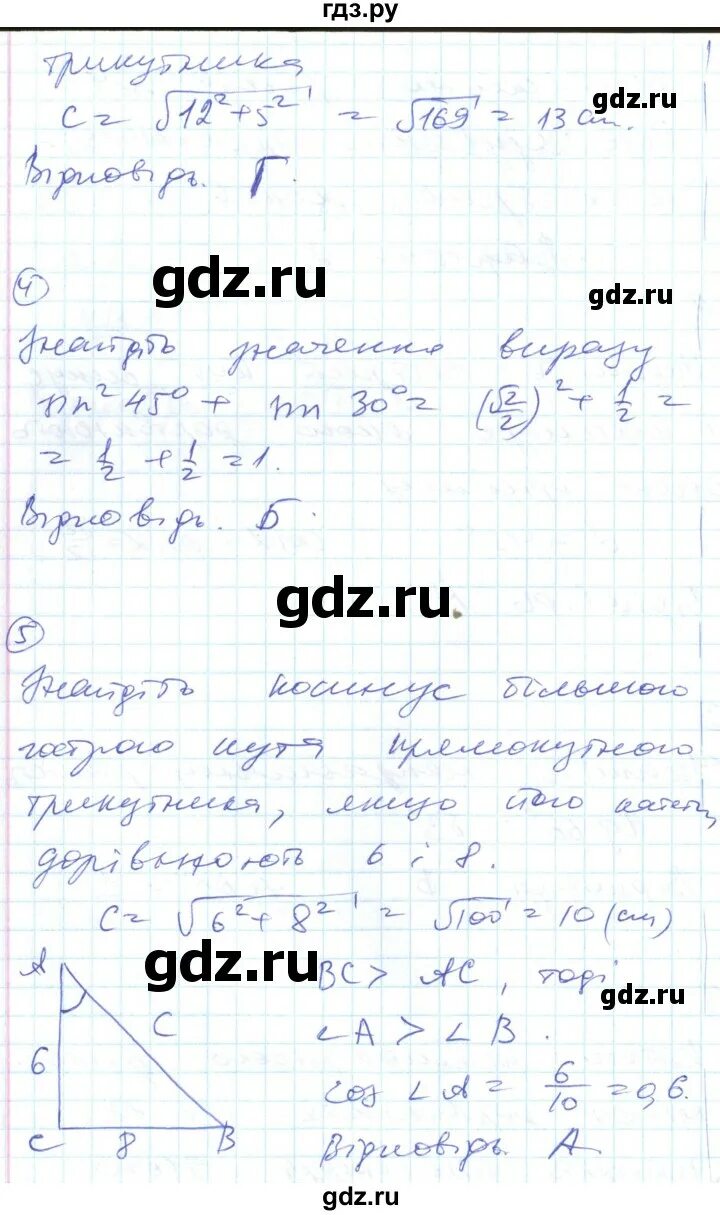 гдз.ру
трикутника
c = √12² + 5² = √169 = 13 см.
gdz.ru
Відповідь. Г.
4
gdz.ru
gdz.ru
Знайдіть значення виразу
sin² 45° + sin 30° = (√2/2)² + 1/2 =
= 1/2 + 1/2 = 1.
Відповідь. Б.
gdz.ru
5
Знайдіть косинус більшого
гострого кута прямокутного
трикутника, якщо його катети
дорівнюють 6 і 8.
C = √6² + 8² = √100 = 10 (см)
gdz.ru
A
BC > AC, тоді
gdz.ru
C
∠A > ∠B.
6
cos ∠A = 6/10 = 0,6.
C 8 B
Відповідь. А.
gdz.ru